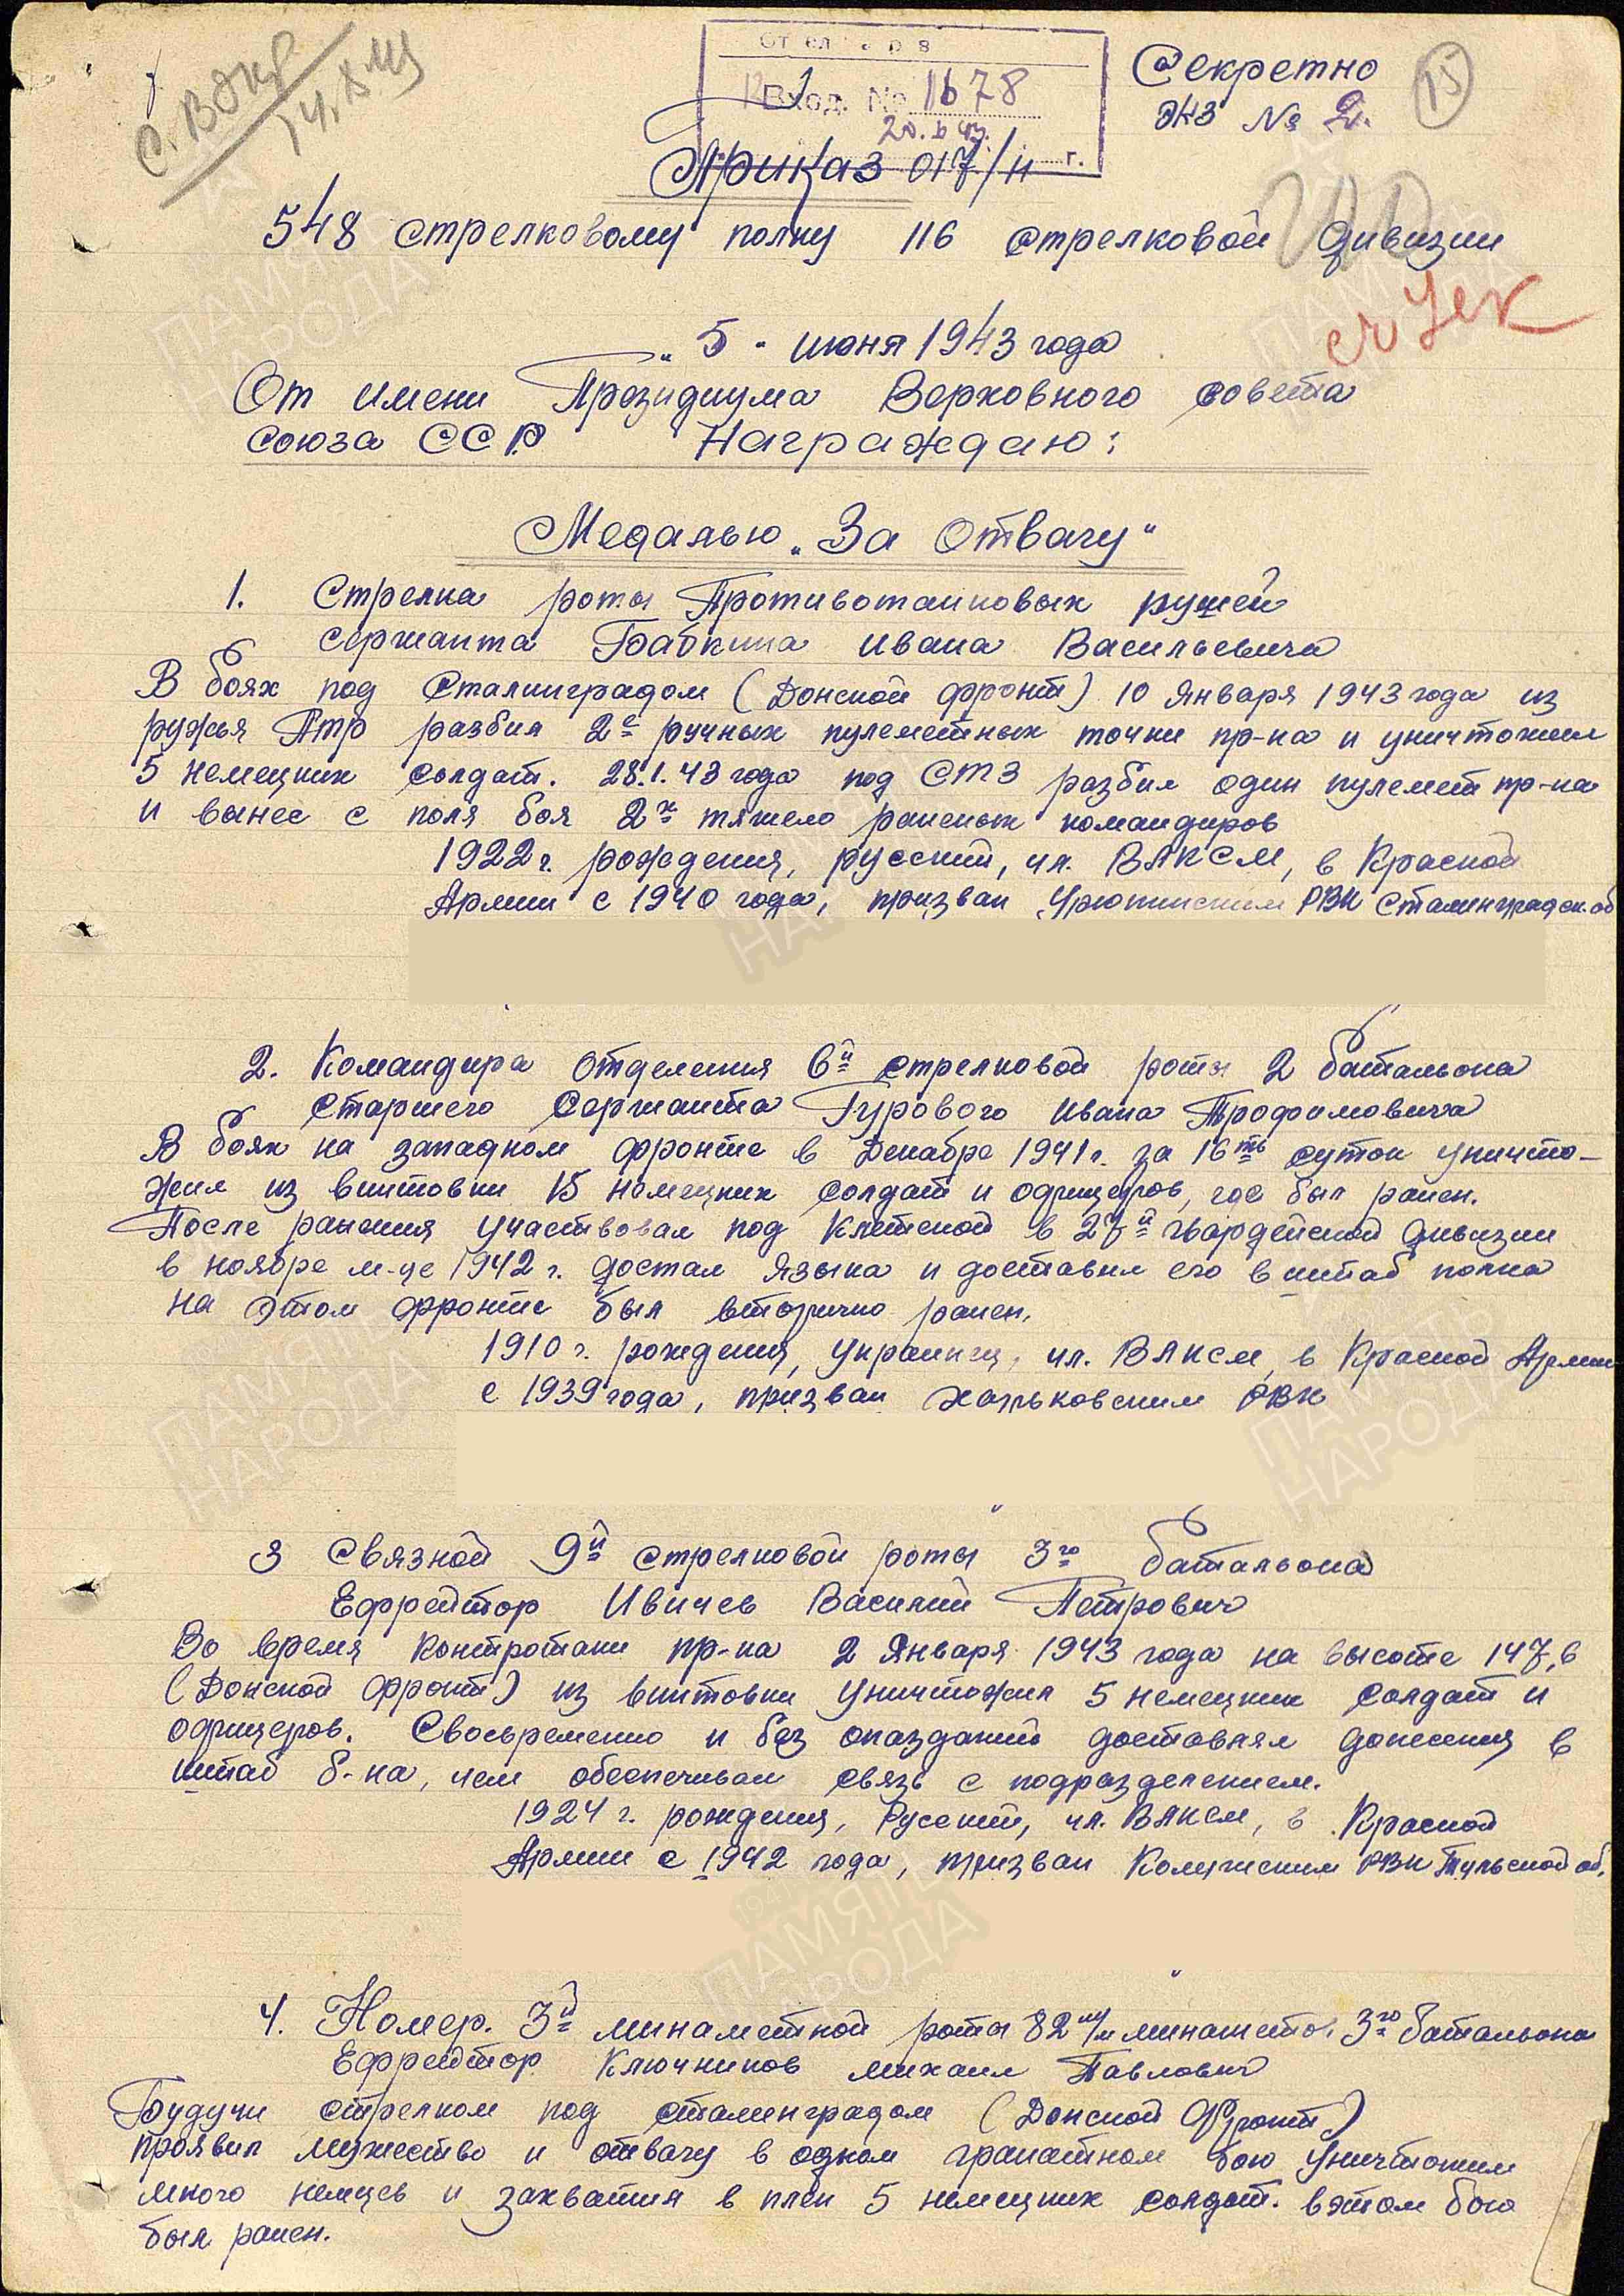 Секретно
Экз № 2.
15
Вход. № 1678
20.6.43.
г.
Приказ 017/н
548 стрелковому полку 116 стрелковой дивизии
„5" июня 1943 года
От имени Президиума Верховного Совета
Союза ССР Награждаю:
Медалью „За Отвагу"
1. Стрелка роты Противотанковых ружей
Сержанта Бабкина Ивана Васильевича
В боях под Сталинградом (Донской фронт) 10 Января 1943 года из
ружья Птр разбил 2е ручных пулеметных точки пр-ка и уничтожил
5 немецких солдат. 28.1.43 года под СТЗ разбил один пулемет пр-ка
и вынес с поля боя 2х тяжело раненых командиров
1922 г. рождения, русский, чл. ВЛКСМ, в Красной
Армии с 1940 года, призван Урюпинским РВК Сталинградск. об
2. Командира Отделения 6й стрелковой роты 2 батальона
Старшего Сержанта Гурового Ивана Трофимовича
В боях на западном фронте в Декабре 1941 г. за 16ть суток уничто-
жил из винтовки 15 немецких солдат и офицеров, где был ранен.
После ранения участвовал под Клетской в 27й гвардейской дивизии
в ноябре м-це 1942 г. достал языка и доставил его в штаб полка
на этом фронте был вторично ранен.
1910 г. рождения, Украинец, чл. ВЛКСМ, в Красной Армии
с 1939 года, призван Харьковским РВК
3 Связной 9й стрелковой роты 3го батальона
Ефрейтор Ивичев Василий Петрович
Во время контратаки пр-ка 2 Января 1943 года на высоте 147,6
(Донской фронт) из винтовки уничтожил 5 немецких солдат и
офицеров. Своевременно и без опазданий доставлял донесения в
штаб б-на, чем обеспечивал связь с подразделением.
1924 г. рождения, Русский, чл. ВЛКСМ, в Красной
Армии с 1942 года, призван РВК Тульской об.
4. Номер. 3й минаметной роты 82 м/м минаметов 3го батальона
Ефрейтор Ключников Михаил Павлович
Будучи стрелком под Сталинградом (Донской Фронт)
проявил мужество и отвагу в одном гранатном бою уничтожил
много немцев и захватил в плен 5 немецких солдат. в этом бою
был ранен.
ПАМЯТЬ
НАРОДА